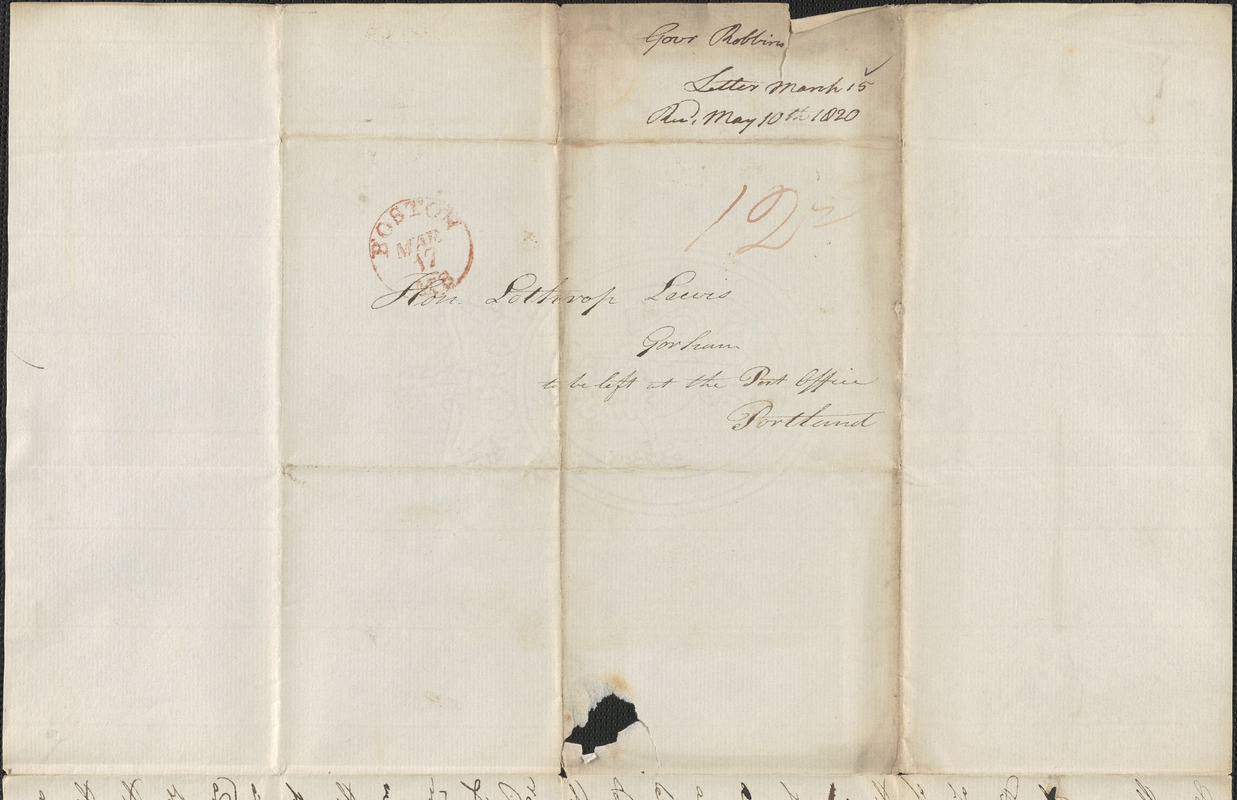 Govr Robbins
Letter March 15
Recd. May 10th 1820
BOSTON
MAR
17
MS
12½
Hon. Lothrop Lewis
Gorham
to be left at the Post Office
Portland